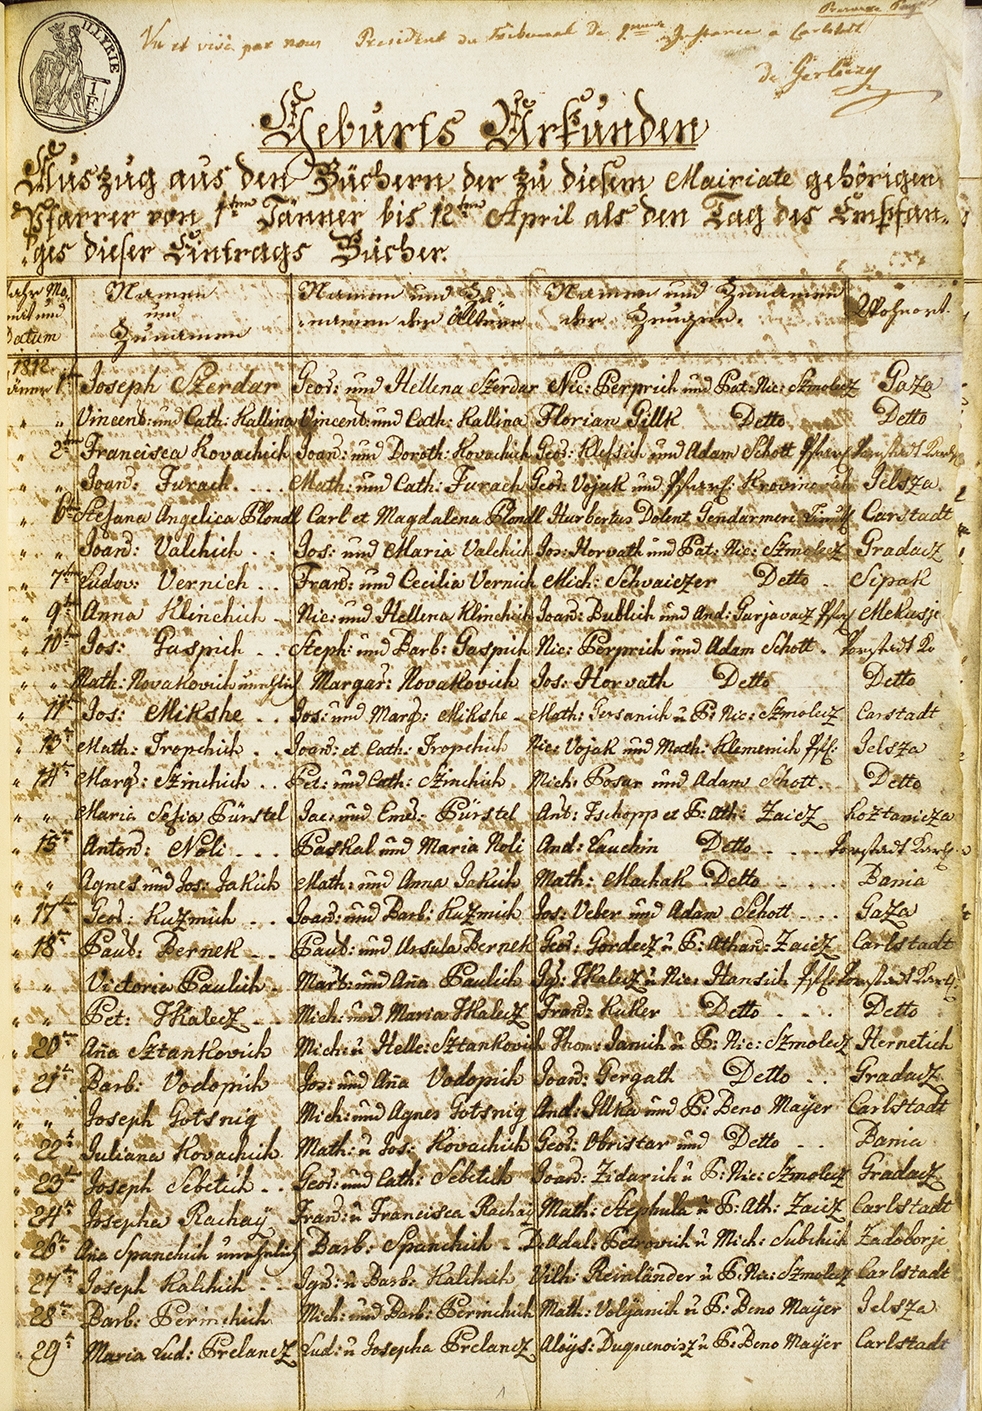 ILLYRIE
1 F
Vu et visé par nous President du Tribunal De 1ere Instance a Carlstadt
de Gerliczy
Geburts Urkunden
Auszug aus den Büchern der zu diesem Mairiate gehörigen
Pfarrer von 1ten Jänner bis 12ten April als den Tag des Empfan-
ges dieser Eintrags Bücher.
Jahr Mo, nat und Datum Namen und Zunamen Namen und Zunamen der Ältern Namen und Zunamen der Zeugen. Wohnort.
1812.
Jänner 1ten Joseph Szerdar Geor: und Hellena Szerdar Nic: Perprich und Pat: Nic: Szmolecz Gaza
" " Vincent: und Cath: Kallina Vincent: und Cath: Kallina Florian Gillk Detto Detto
" 2ten Francisca Kovachich Joan: und Doroth: Kovachich Geor: Klessich und Adam Schott
" " Joan: Furach Math: und Cath: Furach Geor: Vojak und Jelsza
" 6ten Stefana Angelica Blondl Carl et Magdalena Blondl Hurbertus Dolent Gendarmeri Carstadt
" " Joan: Valchich Jos: und Maria Valchich Jos: Horvath und Pat: Nic: Szmolecz Gradacz
" 7ten Ludov: Vernich Fran: und Cecilia Vernich Mich: Schvaiczer Detto Sipak
" 9ten Anna Klinchich Nic: und Hellena Klinchich Joan: Bublich und And: Mekusje
" 10ten Jos: Gaspich Steph: und Barb: Gaspich Nic: Perprich und Adam Schott
" " Math: Novakovich unehlich Margar: Novakovich Jos: Horvath Detto Detto
" 11ten Jos: Mikshe Jos: und Marg: Mikshe Math: Gersanich u P: Nic: Szmolecz Carstadt
" 13ten Math: Tropchich Joan: et Cath: Tropchich Nic: Vojak und Math: Klemenich Jelsza
" 14ten Marg: Szinchich Pet: und Cath: Szinchich Mich: Posar und Adam Schott. Detto
" " Maria Sofia Pürstel Jac: und Emer: Pürstel Ant: Tschopp et P: Ath: Zaicz Koztanicza
" 15ten Anton: Noli Paskal und Maria Noli And: Lauchin Detto
" " Agnes und Jos: Jakich Math: und Anna Jakich Math: Machak Detto Bania
" 17ten Geor: Kuzmich Joan: und Barb: Kuzmich Jos: Veber und Adam Schott Gaza
" 18ten Paul: Bernek Paul: und Ursula Bernek Geor: Gordecz u P: Athan: Zaicz Carlstadt
" " Victoria Paulich Mart: und Aña Paulich Ign: Tkalecz u Nic: Hansich
" " Pet: Tkalecz Mich: und Maria Tkalecz Fran: Kuker Detto Detto
" 20ten Aña Sztankovich Mich: u Helle: Sztankovich Thom: Janich u P: Nic: Szmolecz Hernetich
" 21ten Barb: Vodopich Jos: und Aña Vodopich Joan: Gergath Detto Gradacz
" " Joseph Gotsnig Mich: und Agnes Gotsnig And: Illka und P: Beno Mayer Carlstadt
" 22ten Juliana Kovachich Math: u Jos: Kovachich Geor: Obristar und Detto Bania
" 23ten Joseph Sebetich Geor: und Cath: Sebetich Joan: Zidarich u P: Nic: Szmolecz Gradacz
" 24ten Josepha Rachaÿ Fran: u Francisca Rachaÿ Math: Stephula u P: Ath: Zaicz Carlstadt
" 26ten Aña Spanchich unehelich Barb: Spanchich D: Adal: Petrovich u Mich: Subchich Zadoborje
" 27ten Joseph Kalchich Ign: u Barb: Kalchich Vilh: Reinländer u P: Nic: Szmolecz Carlstadt
" 28ten Barb: Perinchich Mich: und Barb: Perinchich Math: Volyanich u P: Beno Mayer Jelsza
" 29ten Maria Lud: Prelancz Lud: u Josepha Prelancz Aloys: Duquenoisz u P: Beno Mayer Carlstadt
1